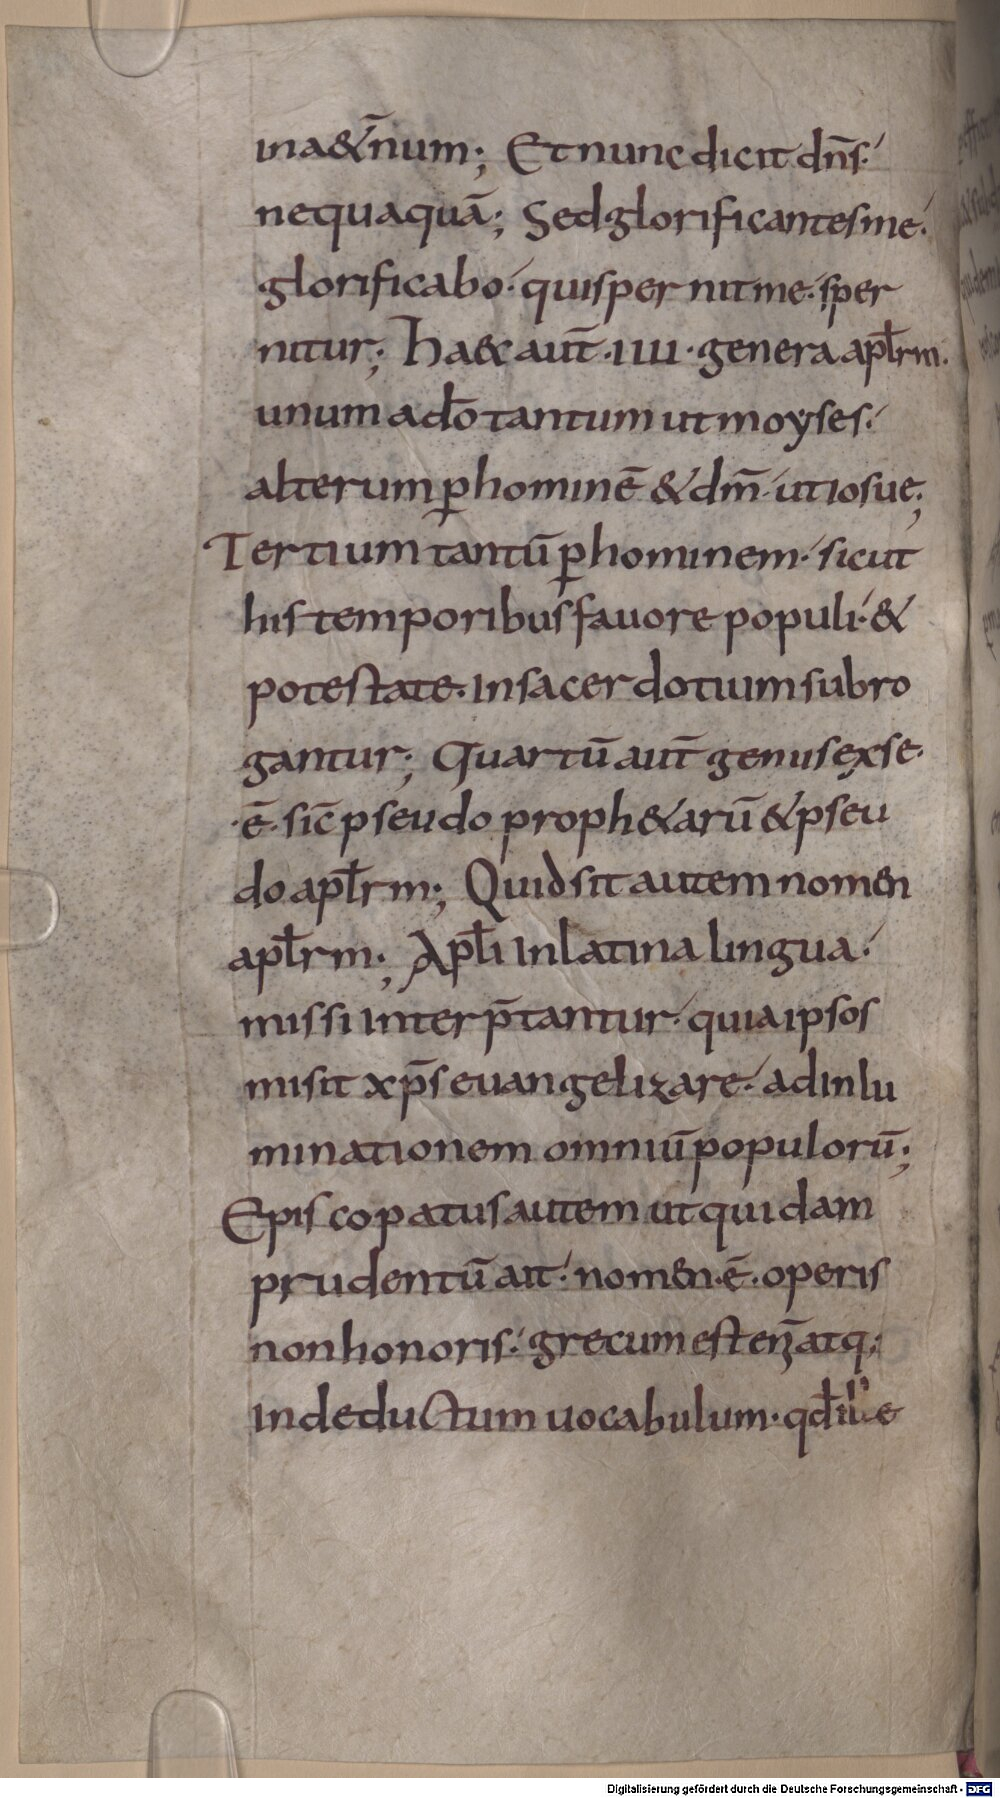 ina&̄num; Et nunc dicit dn̄s·
nequaquā; Sed glorificantes me·
glorificabo· qui spernit me· sper
nitur; Ha& aut̄ ·IIII· genera apl̄rm·
unum a do̅ tantum ut moyses·
alterum ꝑ hominē & dm̄· ut iosue;
Tertium tantū ꝑ hominem· sicut
his temporibus favore populi· &
potestate· In sacerdotium subro
gantur; Quartū aut̄ genus ex se·
·ē· sic̄ pseudo proph&arū & pseu
do apl̄rm; Quid sit autem nomen
apl̄rm; Apl̄i In latina lingua·
missi interp̄tantur· quia ipsos
misit xp̄s euangelizare· ad Inlu
minationem omniū populorū;
Episcopatus autem ut quidam
prudentū ait· nomen ·ē· operis
non honoris· grecum est enī atq;
Inde ductum uocabulum· qd̄ ille
Digitalisierung gefördert durch die Deutsche Forschungsgemeinschaft - DFG